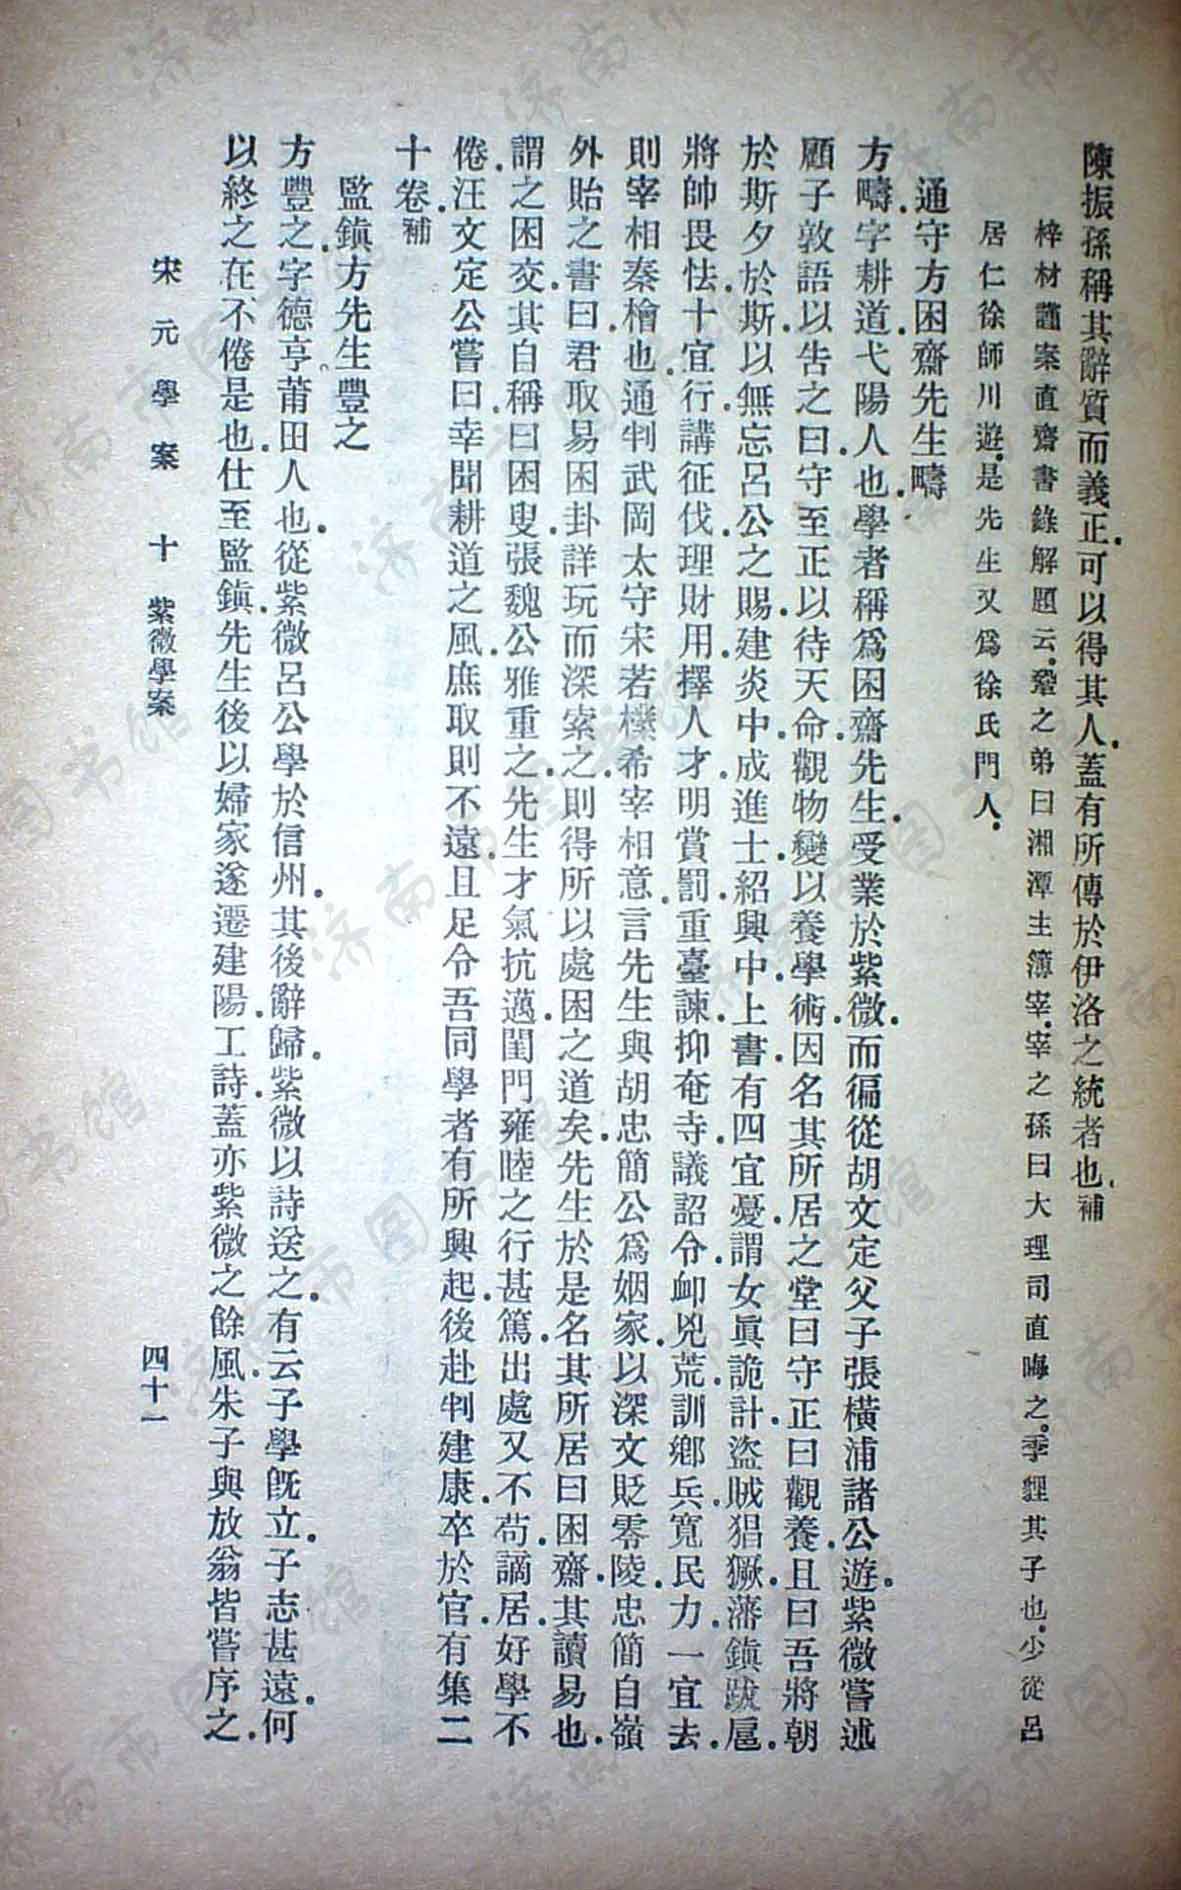 陳振孫稱其辭質而義正可以得其人蓋有所傳於伊洛之統者也補
梓材謹案直齋書錄解題云鞏之弟曰湘潭主簿宰宰之孫曰大理司直晦之季貍其子也少從呂
居仁徐師川遊是先生又爲徐氏門人
通守方困齋先生疇
方疇字耕道弋陽人也學者稱爲困齋先生受業於紫微而徧從胡文定父子張橫浦諸公遊紫微嘗述
顧子敦語以告之曰守至正以待天命觀物變以養學術因名其所居之堂曰守正曰觀養且曰吾將朝
於斯夕於斯以無忘呂公之賜建炎中成進士紹興中上書有四宜憂謂女眞詭計盜賊猖獗藩鎭跋扈
將帥畏怯十宜行講征伐理財用擇人才明賞罰重臺諫抑奄寺議詔令卹兇荒訓鄉兵寬民力一宜去
則宰相秦檜也通判武岡太守宋若樸希宰相意言先生與胡忠簡公爲姻家以深文貶零陵忠簡自嶺
外貽之書曰君取易困卦詳玩而深索之則得所以處困之道矣先生於是名其所居曰困齋其讀易也
謂之困交其自稱曰困叟張魏公雅重之先生才氣抗邁閨門雍睦之行甚篤出處又不苟謫居好學不
倦汪文定公嘗曰幸聞耕道之風庶取則不遠且足令吾同學者有所興起後赴判建康卒於官有集二
十卷補
監鎭方先生豐之
方豐之字德亨莆田人也從紫微呂公學於信州其後辭歸紫微以詩送之有云子學旣立子志甚遠何
以終之在不倦是也仕至監鎭先生後以婦家遂遷建陽工詩蓋亦紫微之餘風朱子與放翁皆嘗序之
宋元學案 十 紫微學案
四十一
济南市图书馆